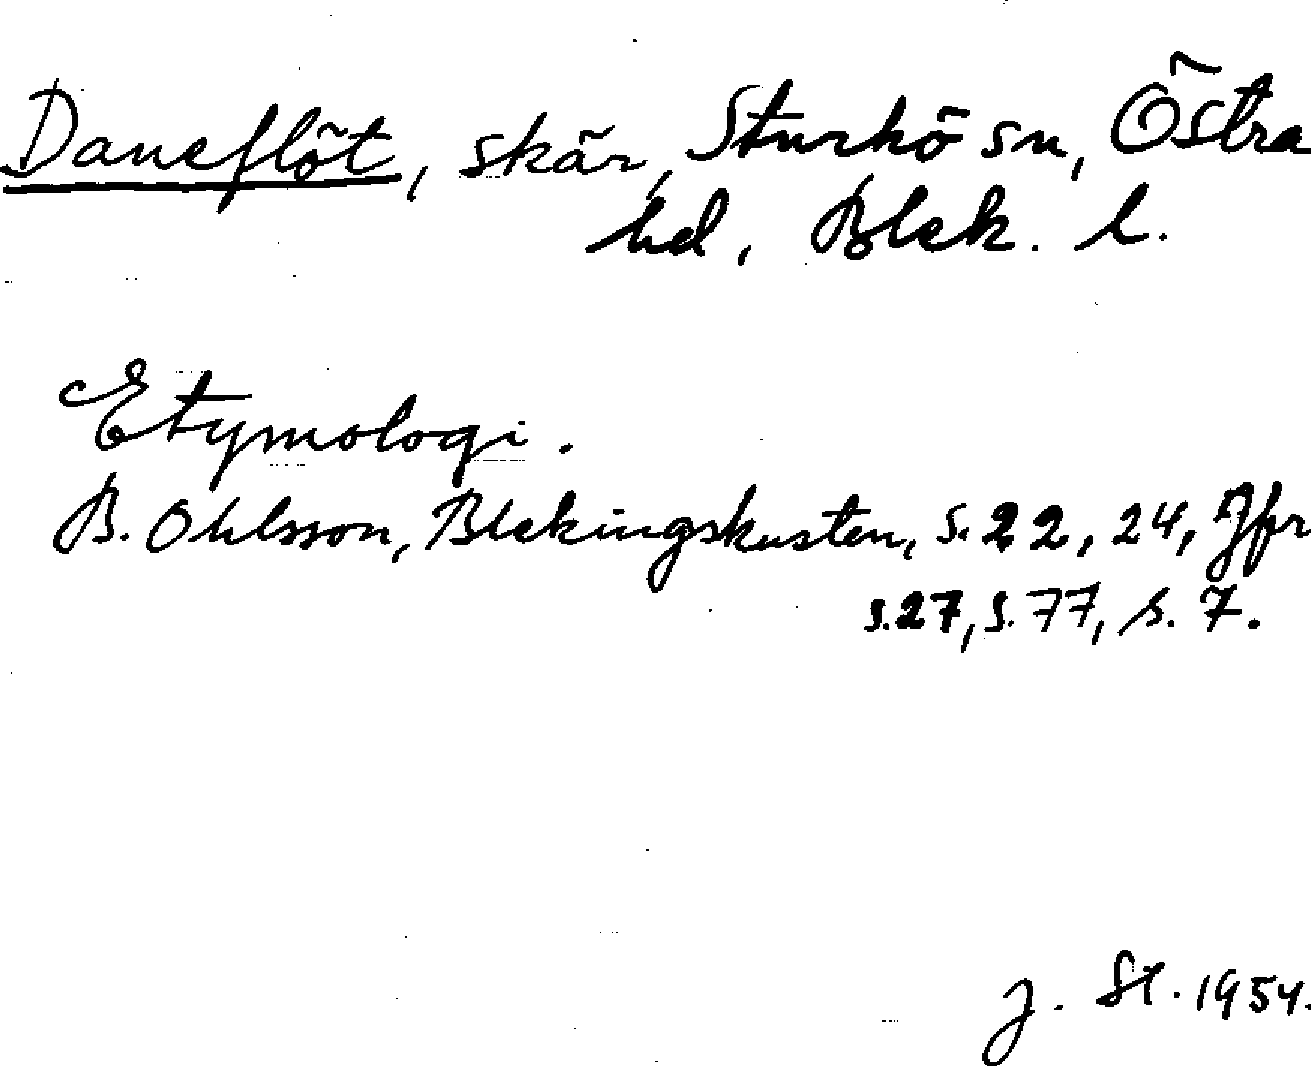 Daneflöt, skär, Sturkö sn, Östra
hd, Blek. l.
Etymologi.
B. Ohlsson, Blekingskusten, s. 22, 24, Jfr
s. 27, s. 77, s. 7.
J. St. 1954.